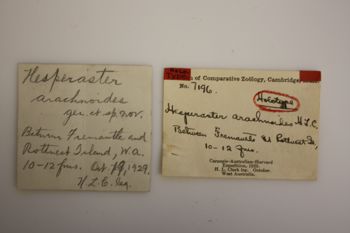 Hesperaster
arachnoides
gen. et sp. nov.
Between Fremantle and
Rottnest Island, W.A.
10-12 fms. Oct 1929.
H.L.C.
of Comparative Zoölogy, Cambridge,
No. 7196.
Holotype
Hesperaster arachnoides H.L.C.
Between Fremantle & Rottnest Is,
10-12 fms.
Carnegie-Australian-Harvard
Expedition, 1929.
H. L. Clark October
West Australia.